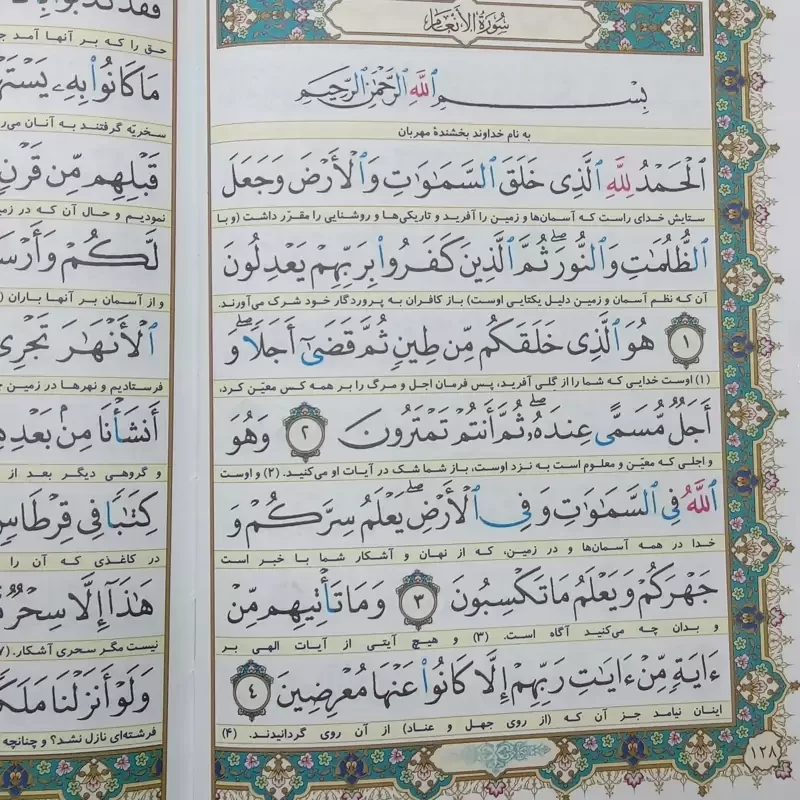 سُورَةُ الأَنْعَامِ
بِسْمِ اللَّهِ الرَّحْمَٰنِ الرَّحِيمِ
به نام خداوند بخشندهٔ مهربان
الْحَمْدُ لِلَّهِ الَّذِي خَلَقَ السَّمَاوَاتِ وَالْأَرْضَ وَجَعَلَ
ستایش خدای راست که آسمان‌ها و زمین را آفرید و تاریکی‌ها و روشنایی را مقرّر داشت (و با
الظُّلُمَاتِ وَالنُّورَ ۖ ثُمَّ الَّذِينَ كَفَرُوا بِرَبِّهِمْ يَعْدِلُونَ
آن که نظم آسمان و زمین دلیل یکتایی اوست) باز کافران به پروردگار خود شرک می‌آورند.
۱ هُوَ الَّذِي خَلَقَكُمْ مِنْ طِينٍ ثُمَّ قَضَىٰ أَجَلًا ۖ وَ
(۱) اوست خدایی که شما را از گِلی آفرید، پس فرمان اجل و مرگ را بر همه کس معیّن کرد،
أَجَلٌ مُسَمًّى عِنْدَهُ ۖ ثُمَّ أَنْتُمْ تَمْتَرُونَ ۲ وَهُوَ
و اجلی که معیّن و معلوم است به نزد اوست، باز شما شک در آیات او می‌کنید. (۲) و اوست
اللَّهُ فِي السَّمَاوَاتِ وَفِي الْأَرْضِ ۖ يَعْلَمُ سِرَّكُمْ وَ
خدا در همه آسمان‌ها و در زمین، که از نهان و آشکار شما با خبر است
جَهْرَكُمْ وَيَعْلَمُ مَا تَكْسِبُونَ ۳ وَمَا تَأْتِيهِمْ مِنْ
و بدان چه می‌کنید آگاه است. (۳) و هیچ آیتی از آیات الهی بر
ءَايَةٍ مِنْ ءَايَاتِ رَبِّهِمْ إِلَّا كَانُوا عَنْهَا مُعْرِضِينَ ۴
اینان نیامد جز آن که (از روی جهل و عناد) از آن روی گردانیدند. (۴)
۱۲۸
حق را که بر آنها آمد
مَا كَانُوا بِهِ
سخریّه گرفتند به آنان
قَبْلِهِمْ مِنْ قَرْنٍ
نمودیم و حال آن که در
لَكُمْ
و از آسمان بر آنها باران
الْأَنْهَارَ تَجْرِي
فرستادیم و نهرها در زمین
أَنْشَأْنَا مِنْ بَعْدِ
و گروهی دیگر بعد از
كِتَابًا فِي قِرْطَاسٍ
در کاغذی که آن را
هَٰذَا إِلَّا سِحْرٌ
نیست مگر سحری آشکار.
وَلَوْ أَنْزَلْنَا
فرشته‌ای نازل نشد؟ و چنانچه